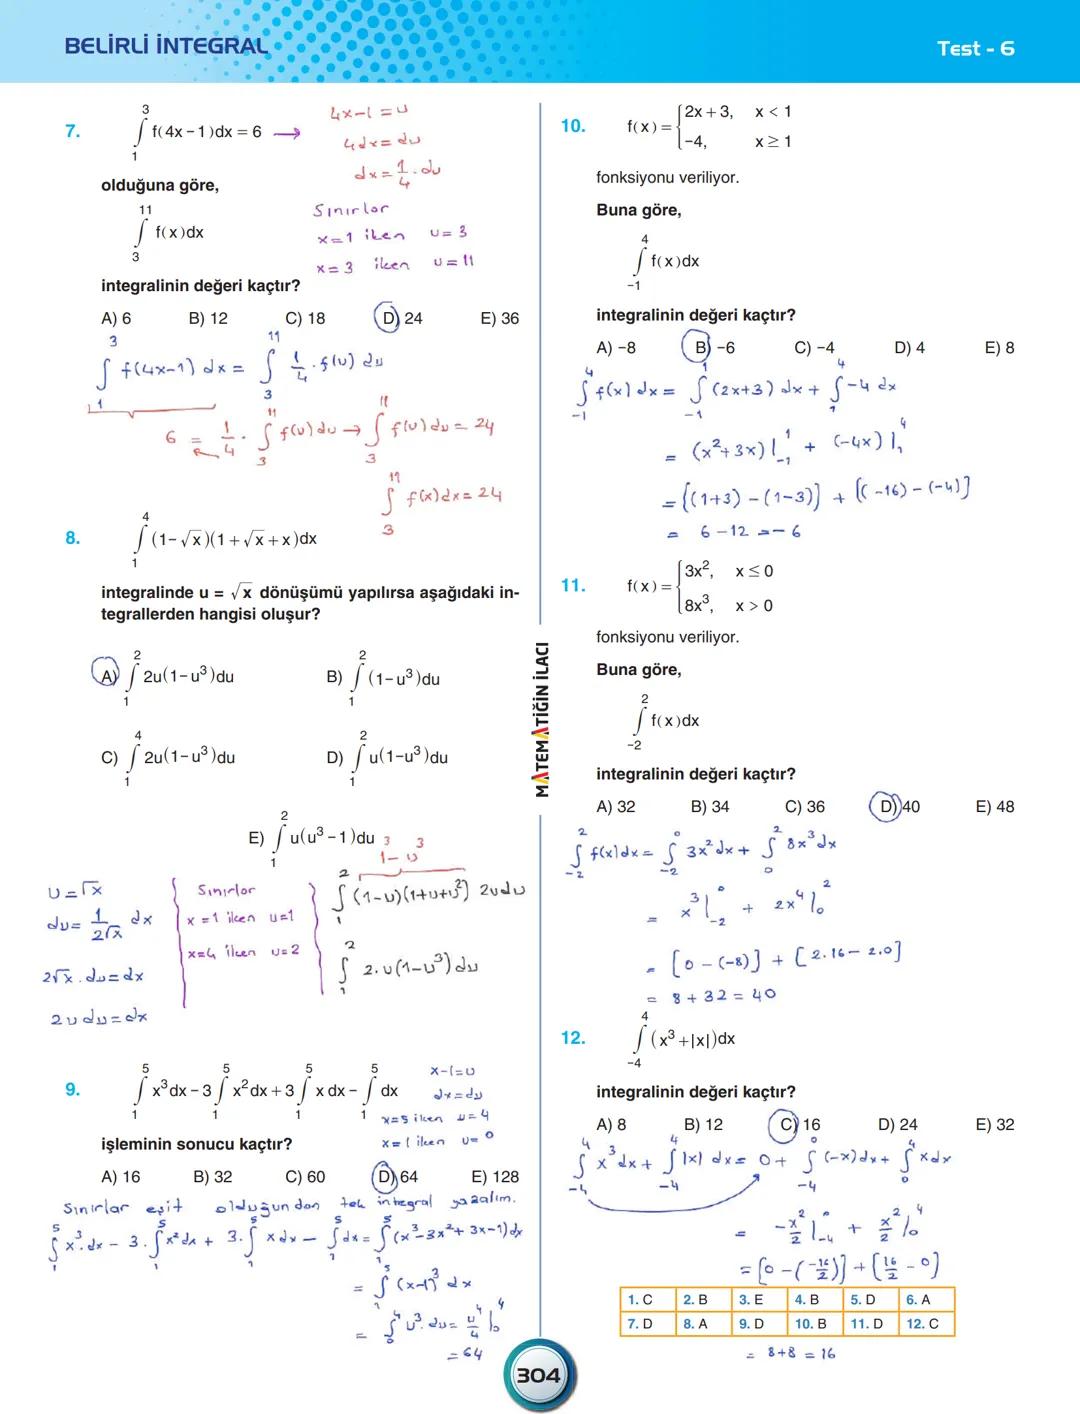 BELİRLİ İNTEGRAL
Test - 6
7. ∫₁³ f(4x − 1)dx = 6 →
4x-1 = u
4dx = du
dx = 1/4 . du
olduğuna göre,
∫₃¹¹ f(x)dx
Sınırlar
x=1 iken u=3
x=3 iken u=11
integralinin değeri kaçtır?
A) 6 B) 12 C) 18 D) 24 E) 36
∫₁³ f(4x-1) dx = ∫₃¹¹ 1/4 . f(u) du
6 = 1/4 . ∫₃¹¹ f(u) du → ∫₃¹¹ f(u) du = 24
∫₃¹¹ f(x) dx = 24
8. ∫₁⁴ (1−√x)(1+√x+x)dx
integralinde u = √x dönüşümü yapılırsa aşağıdaki in-
tegrallerden hangisi oluşur?
A) ∫₁² 2u(1−u³)du B) ∫₁² (1−u³)du
C) ∫₁⁴ 2u(1−u³)du D) ∫₁² u(1−u³)du
E) ∫₁² u(u³−1)du
1³-u³
u=√x
du= 1/2√x dx
2√x . du=dx
2u du=dx
Sınırlar
x=1 iken u=1
x=4 iken u=2
∫₁² (1-u)(1+u+u²) 2udu
∫₁² 2.u(1-u³) du
9. ∫₁⁵ x³dx − 3∫₁⁵ x²dx + 3∫₁⁵ x dx − ∫₁⁵ dx
x-1=u
dx=du
x=5 iken u=4
x=1 iken u=0
işleminin sonucu kaçtır?
A) 16 B) 32 C) 60 D) 64 E) 128
Sınırlar eşit olduğundan tek integral yazalım.
∫₁⁵ x³.dx - 3.∫₁⁵ x²dx + 3.∫₁⁵ xdx - ∫₁⁵ dx = ∫₁⁵ (x³-3x²+3x-1)dx
= ∫₁⁵ (x-1)³ dx
= ∫₀⁴ u³.du = u⁴/4 |₀⁴
= 64
MATEMATİĞİN İLACI
10. f(x) = { 2x + 3, x < 1
−4, x ≥ 1
fonksiyonu veriliyor.
Buna göre,
∫₋₁⁴ f(x)dx
integralinin değeri kaçtır?
A) −8 B) −6 C) −4 D) 4 E) 8
∫₋₁⁴ f(x) dx = ∫₋₁¹ (2x+3) dx + ∫₁⁴ -4 dx
= (x²+3x)|₋₁¹ + (-4x)|₁⁴
= [(1+3) - (1-3)] + [(-16) - (-4)]
= 6 - 12 = - 6
11. f(x) = { 3x², x ≤ 0
8x³, x > 0
fonksiyonu veriliyor.
Buna göre,
∫₋₂² f(x)dx
integralinin değeri kaçtır?
A) 32 B) 34 C) 36 D) 40 E) 48
∫₋₂² f(x)dx = ∫₋₂⁰ 3x²dx + ∫₀² 8x³dx
= x³|₋₂⁰ + 2x⁴|₀²
= [0 - (-8)] + [2.16 - 2.0]
= 8 + 32 = 40
12. ∫₋₄⁴ (x³ + |x|)dx
integralinin değeri kaçtır?
A) 8 B) 12 C) 16 D) 24 E) 32
∫₋₄⁴ x³dx + ∫₋₄⁴ |x| dx = 0 + ∫₋₄⁰ (-x)dx + ∫₀⁴ xdx
= -x²/2 |₋₄⁰ + x²/2 |₀⁴
= [0 - (-16/2)] + [16/2 - 0]
1. C 2. B 3. E 4. B 5. D 6. A
7. D 8. A 9. D 10. B 11. D 12. C
= 8+8 = 16
304